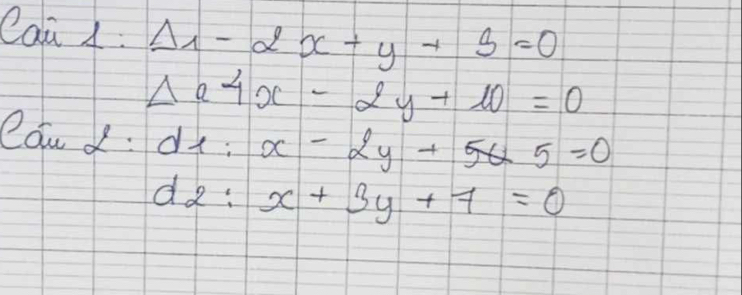 Câu 1: Δ1 - 2x + y + 3 = 0
Δ2 4x - 2y + 10 = 0
Câu 2: d1: x - 2y + 5 = 0
d2: x + 3y + 7 = 0